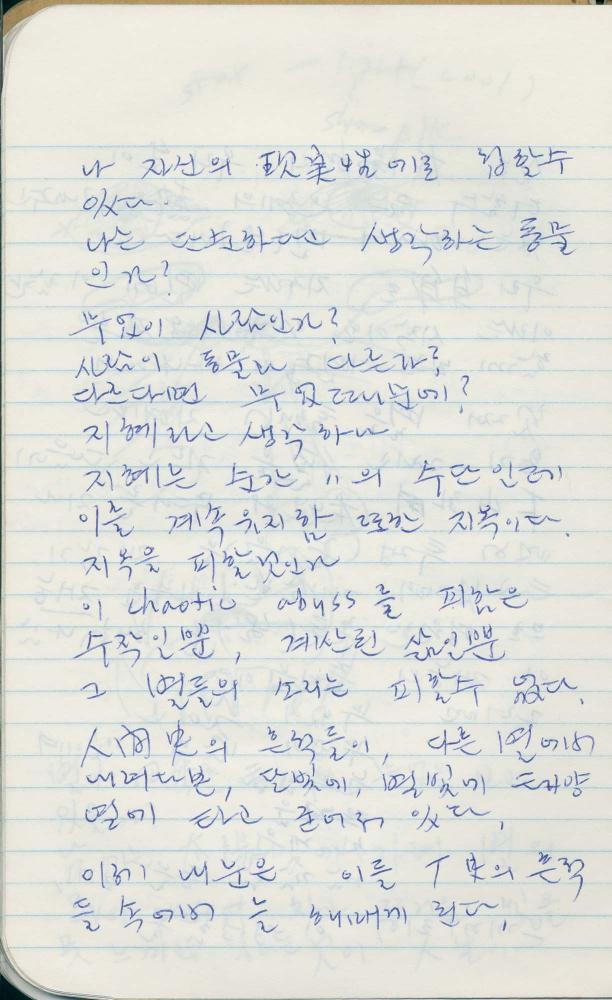 나 자신의 現実性 에로 취할수
있다.
나는 단순하다고 생각하는 동물
인가?
무엇이 사람인가?
사람이 동물과 다른가?
다르다면 무엇때문에?
지혜라고 생각하나
지혜는 순간 〃의 수단인데
이를 계속 유지함 또한 지옥이다.
지옥을 피할것인가
이 chaotic abyss를 피함은
수작일뿐, 계산된 삶일뿐
그 별들의 소리는 피할수 없다.
人間史의 흔적들이, 다른 별에서
내려다본, 달빛에, 별빛에 태양
열에 타고 있다.
이제 내 눈은 이들 人史의 흔적
들 속에서 늘 헤매게 된다.